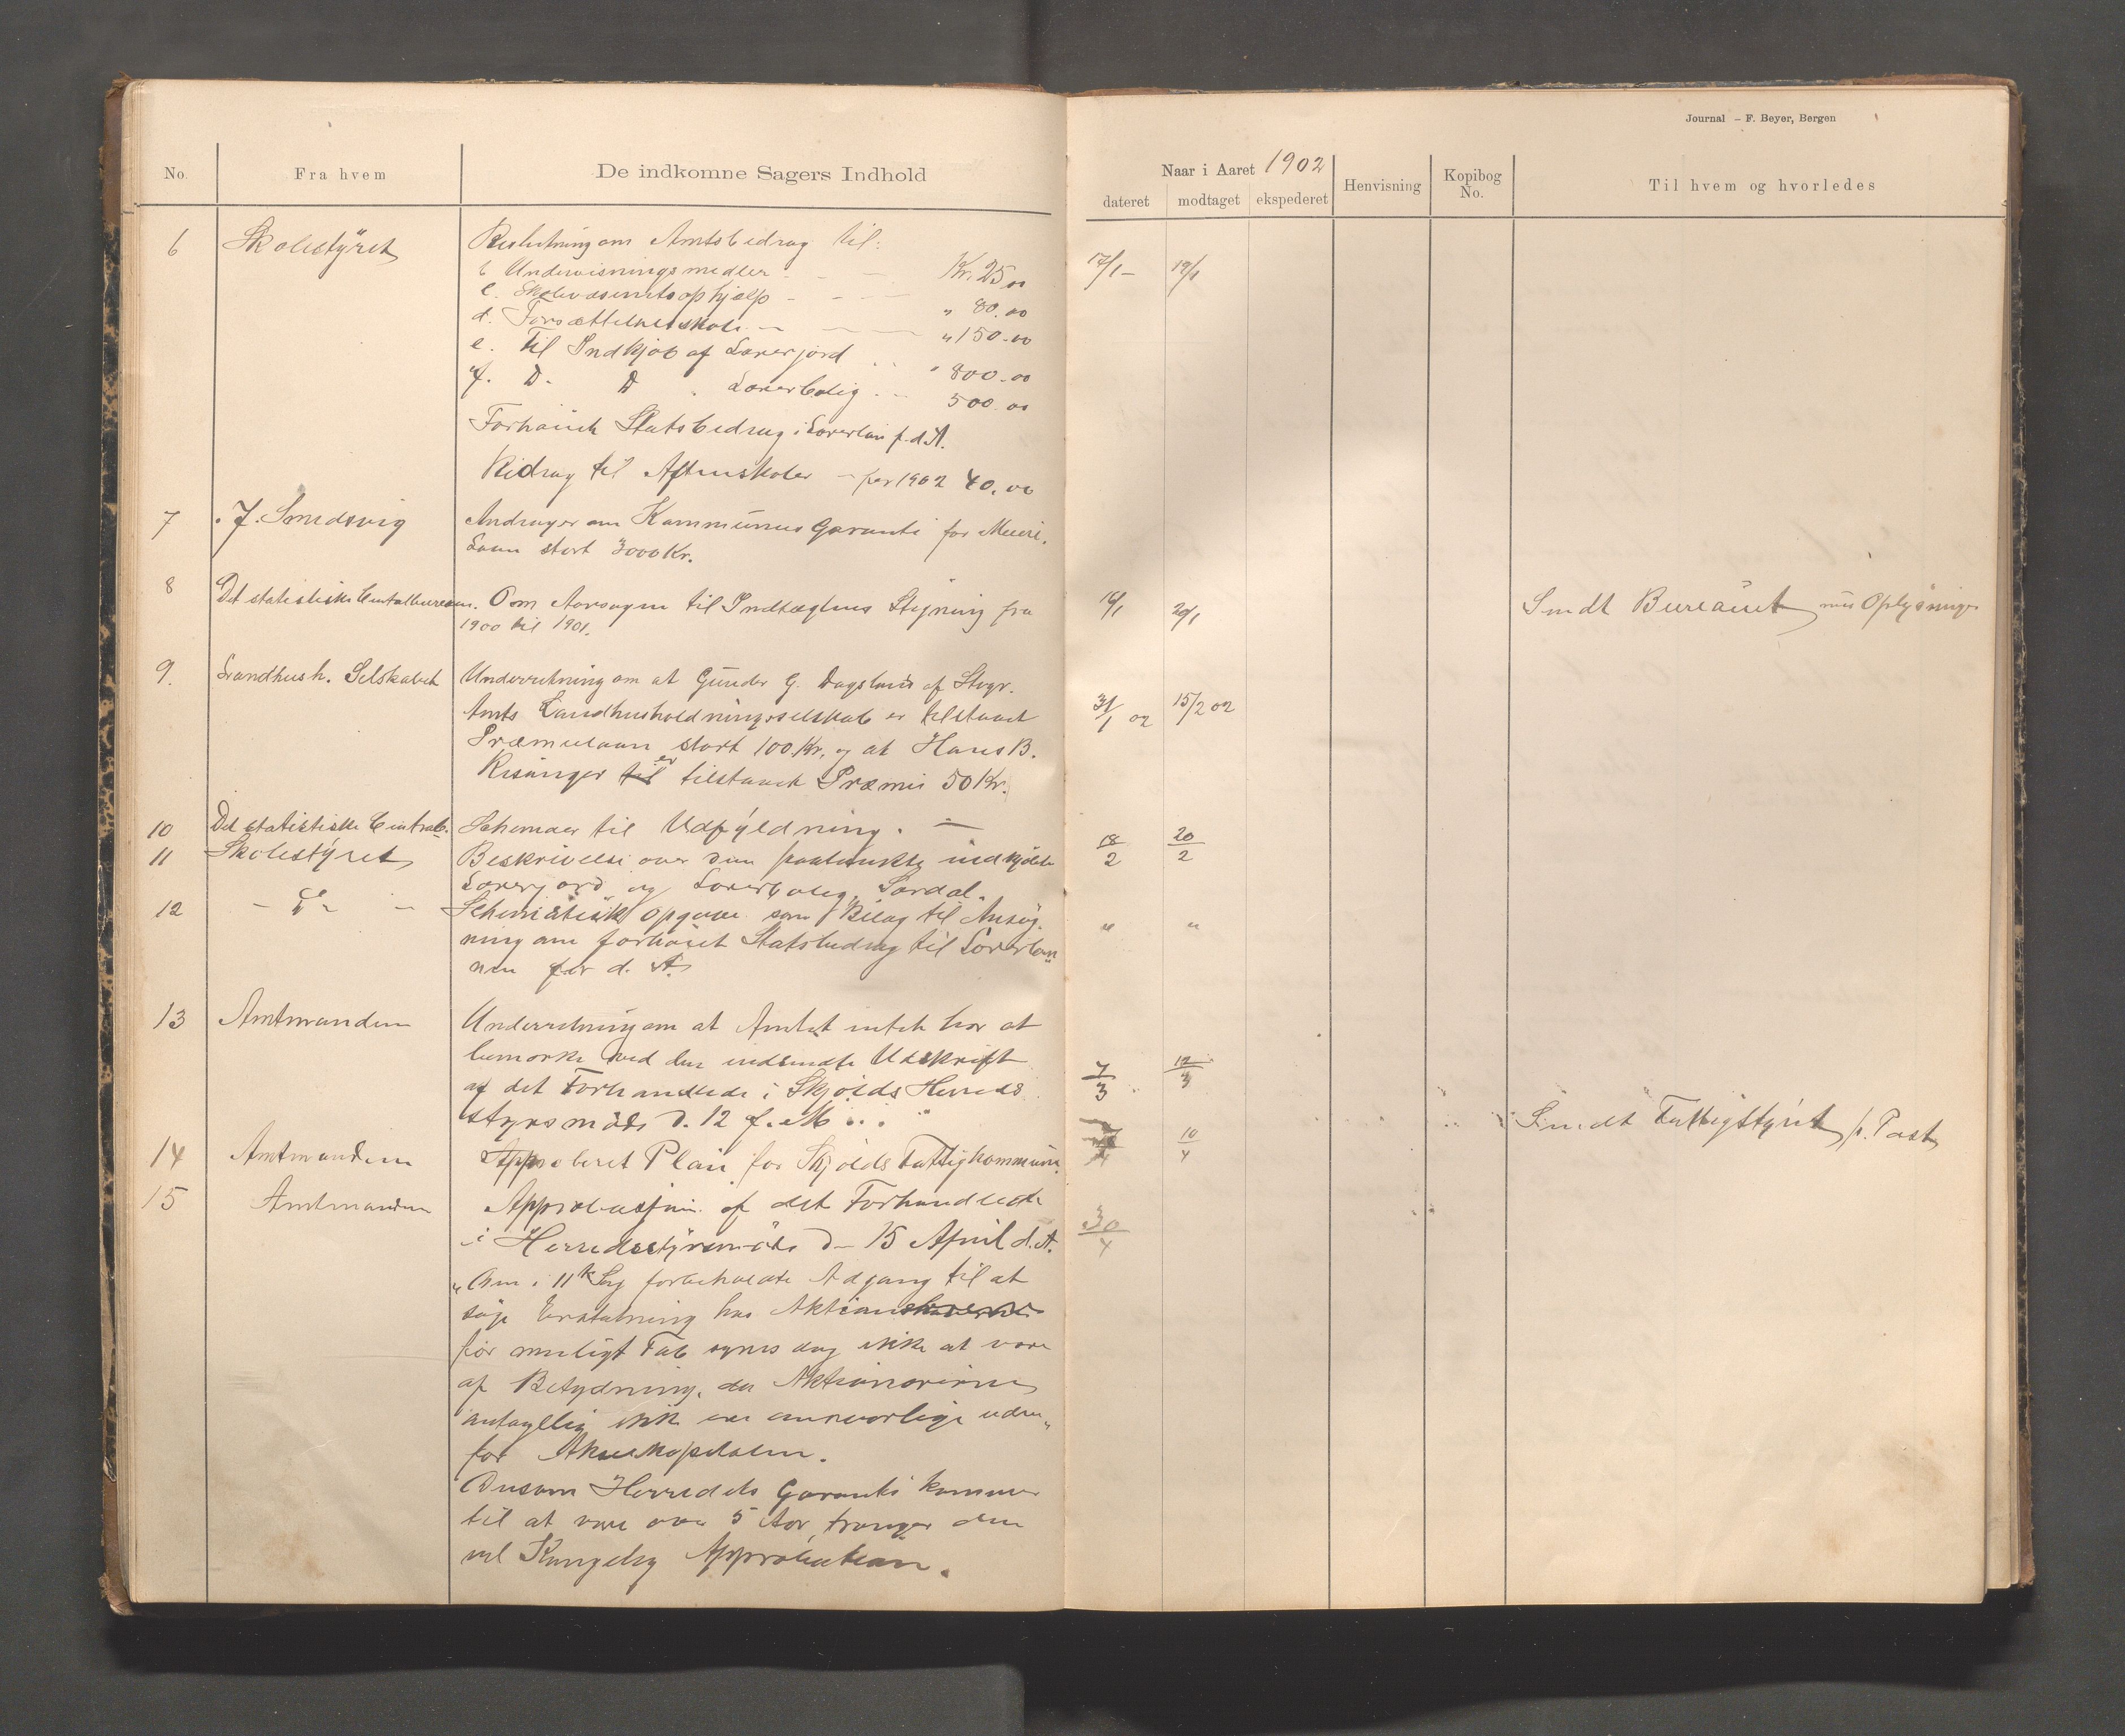 Journal – F. Beyer, Bergen
No. Fra hvem De indkomne Sagers Indhold
Naar i Aaret 1902 Henvisning Kopibog No. Til hvem og hvorledes
dateret modtaget ekspederet
6 Skolestyret Beslutning om Amtsbidrag til: 17/1 19/1
b Undervisningsmedler - - Kr. 25,00
c. Skolevæsenets ophjælp - - - " 80.00
d. Forsættelsesskole - - - " 150.00
e. Til Indkjøb af Lærerjord " 800.00
f. D. D Lærerbolig - 500.00
Forhøiet Statsbidrag i Lærerløn f. d. A.
Bidrag til Aftenskoler - for 1902 40,00
7 J. Smedsvig Andrager om Kommunens Garanti for Meieri.
Laan stort 3000 Kr.
8 Det statistiske Centralbureau. Om Aarsagen til Indtægtens Stigning fra 20/1 Sendt Bureauet Oplysninger
1900 til 1901.
9. Landhush. Selskabet Underretning om at Gunder G. Dagsland af Stvgr.
Amts Landhusholdningsselskab er tilstaaet 31/1 02 15/2 02
Præmielaan stort 100 Kr. og at Hans B.
Risanger til er tilstaaet Præmie 50 Kr.
10 Det statistiske Centralb. Schemaer til Udfyldning. - 18/2 20/2
11 Skolestyret Beskrivelse over den paatænkte indkjøbte
Lærerjord og Lærerbolig, Lærdal.
12 - D - Schematisk Opgave som Bilag til Ansøg- " "
ning om forhøiet Statsbidrag til Lærerløn
nen for d. A.
13 Amtmanden Underretning om at Amtet intet har at
bemærke ved den indsendte Udskrift 7/3 12/3
af det Forhandlede i Skjolds Herreds
styrsmøde d. 12 f. M.
14 Amtmanden Approberet Plan for Skjolds Fattigkommune. 10/4 Sendt Fattigstyret p. Post
15 Amtmanden Approbasjon af det Forhandlede
i Herredsstyrsmøde d - 15 April d. A. 30/4
"Den i 11te Sag forbeholdte Adgang til at
søge Erstatning hos Aktionshaverne
for muligt Tab synes dog ikke at være
af Betydning, da Aktionærerne
antagelig ikke ere ansvarlige uden-
for Aksiekapitalen.
Dersom Herredets Garanti kommer
til at vare over 5 Aar, trænger den
vel Kongelig Approbation.